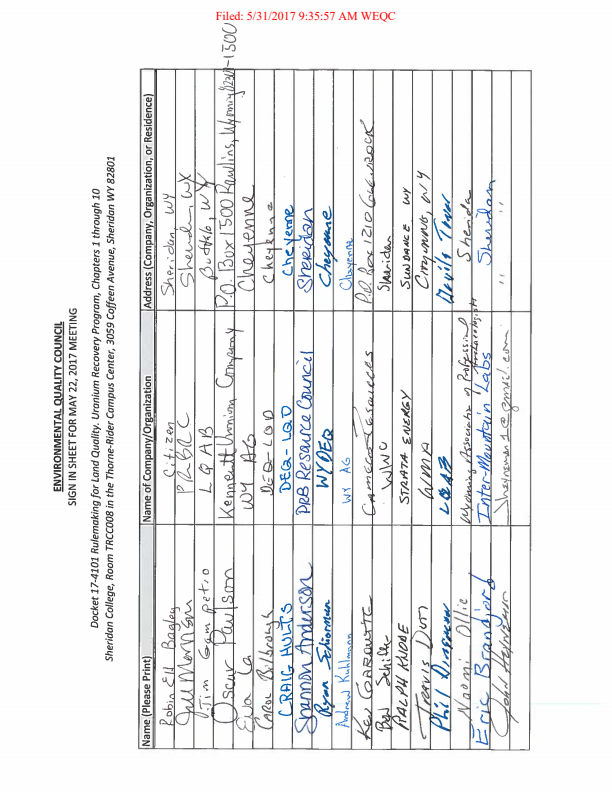 Filed: 5/31/2017 9:35:57 AM WEQC
ENVIRONMENTAL QUALITY COUNCIL
SIGN IN SHEET FOR MAY 22, 2017 MEETING
Docket 17-4101 Rulemaking for Land Quality. Uranium Recovery Program, Chapters 1 through 10
Sheridan College, Room TRCC008 in the Thorne-Rider Campus Center, 3059 Coffeen Avenue, Sheridan WY 82801
Name (Please Print) Name of Company/Organization Address (Company, Organization, or Residence)
Robin Bagley Citizen Sheridan WY
Jill Morrison PRBRC Sheridan, WY
Jim Gampetro LQAB Buffalo, WY
Oscar Paulson Kennecott Uranium Company P.O. Box 1500 Rawlins, Wyoming 82301-1500
Eva La WY AG Cheyenne
Carol Bilbrough DEQ-LQD Cheyenne
CRAIG HULTS DEQ-LQD Cheyenne
Shannon Anderson PRB Resource Council Sheridan
Ryan Schierman WYDEQ Cheyenne
Andrew Kuhlmann WY AG Cheyenne
Ken GARoutte Cameco Resources P.O. Box 1210 GLENROCK
Ben Schiffer WWC Sheridan
RALPH KNODE STRATA ENERGY SUNDANCE WY
TRAVIS WMA CHEYENNE, WY
Phil LQAB Devils Tower
Naomi Ollie Wyoming Association of Professional Archaeologists Sherida
Eric Brandjord Inter-Mountain Labs Sheridan
John " "